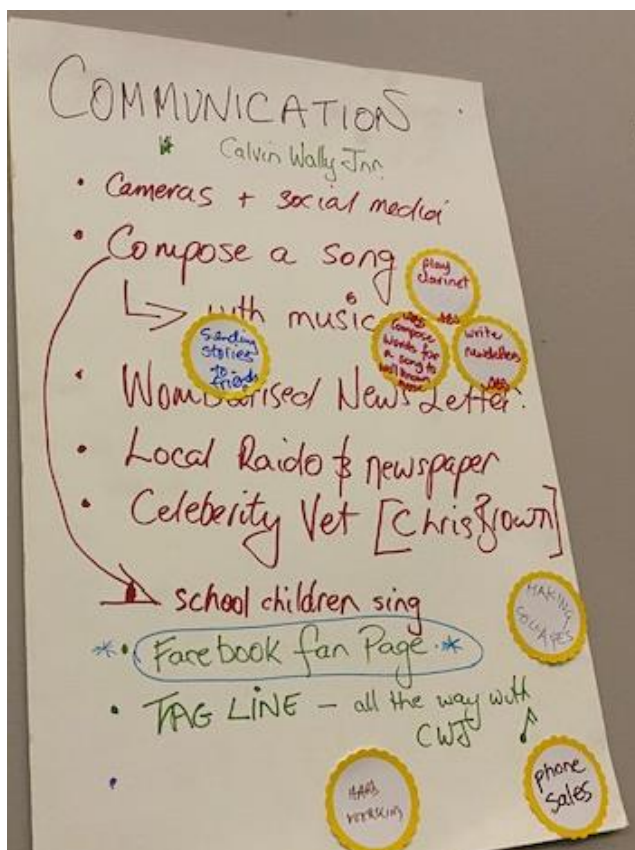 COMMUNICATION
Calvin Wally Jnr
• Cameras + social media
• Compose a song
play
clarinet
with music
Sending
stories
to
friends
Compose
words for
a song to
well known
write
newsletters
• Wombarised News Letter.
• Local Raido & newspaper
• Celeberity Vet [Chris Brown]
school children sing
MAKING
* • Facebook fan Page *
• TAG LINE – all the way with
CWJ
HARD
WORKING
phone
sales